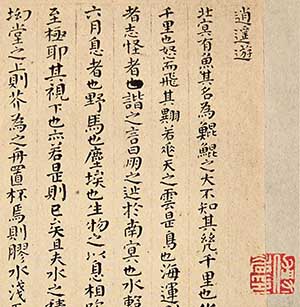 逍遥遊
北冥有魚其名為鯤鯤之大不知其幾千里也
千里也怒而飛其翼若垂天之雲是鳥也海運
者志怪者也諧之言曰鵬之徙於南冥也水擊
六月息者也野馬也塵埃也生物之以息相吹
至極耶其視下也亦若是則已矣且夫水之積
坳堂之上則芥為之舟置杯焉則膠水淺